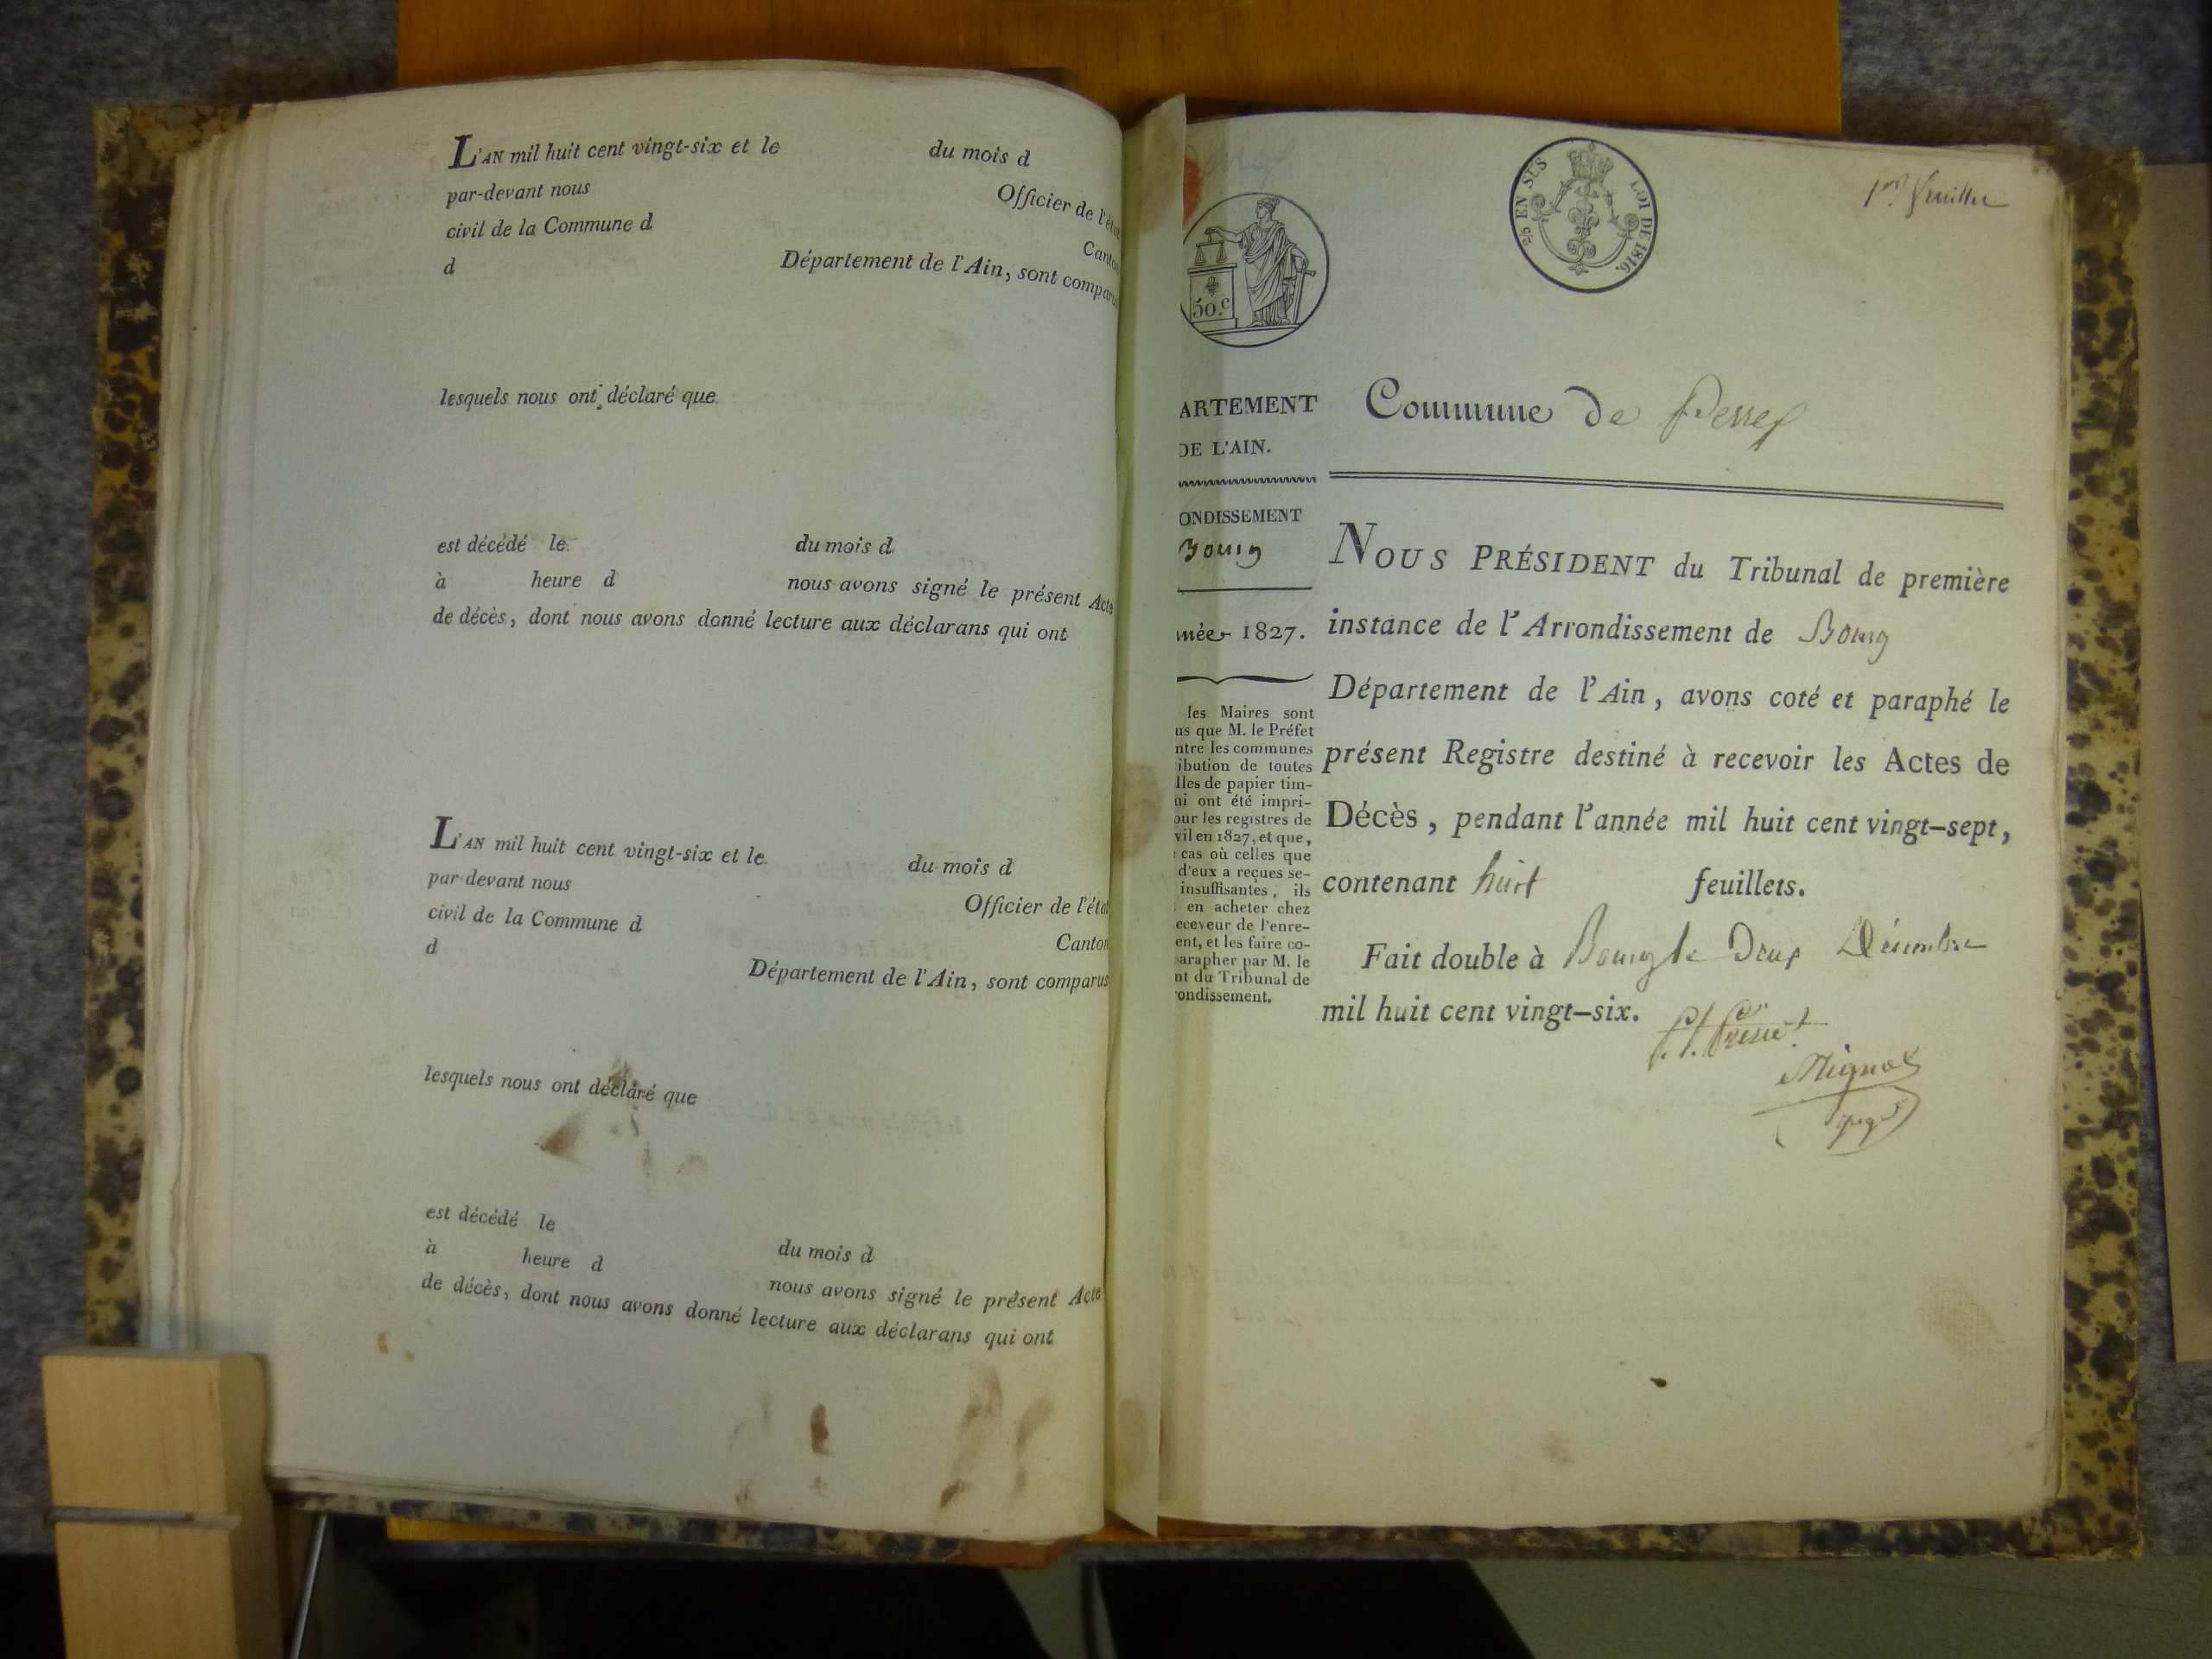 L'AN mil huit cent vingt-six et le du mois d
par-devant nous Officier de l'état
civil de la Commune d Canton
d Département de l'Ain, sont comparus
lesquels nous ont déclaré que
est décédé le du mois d
à heure d nous avons signé le présent Acte
de décès, dont nous avons donné lecture aux déclarans qui ont
L'AN mil huit cent vingt-six et le du mois d
par devant nous Officier de l'état
civil de la Commune d Canton
d Département de l'Ain, sont comparus
lesquels nous ont déclaré que
est décédé le du mois d
à heure d nous avons signé le présent Acte
de décès, dont nous avons donné lecture aux déclarans qui ont
50.c
EN SUS
LOI DE 1816.
1er feuillet
ARTEMENT
DE L'AIN.
ONDISSEMENT
Bourg
née 1827.
les Maires sont
us que M. le Préfet
ntre les communes
ibution de toutes
lles de papier tim-
ui ont été impri-
our les registres de
vil en 1827, et que,
cas où celles que
d'eux a reçues se-
insuffisantes, ils
en acheter chez
eceveur de l'enre-
ent, et les faire co-
arapher par M. le
nt du Tribunal de
ondissement.
Commune de
NOUS PRÉSIDENT du Tribunal de première
instance de l'Arrondissement de Bourg
Département de l'Ain, avons coté et paraphé le
présent Registre destiné à recevoir les Actes de
Décès, pendant l'année mil huit cent vingt-sept,
contenant huit feuillets.
Fait double à Bourg le Deux Décembre
mil huit cent vingt-six.
Mignot